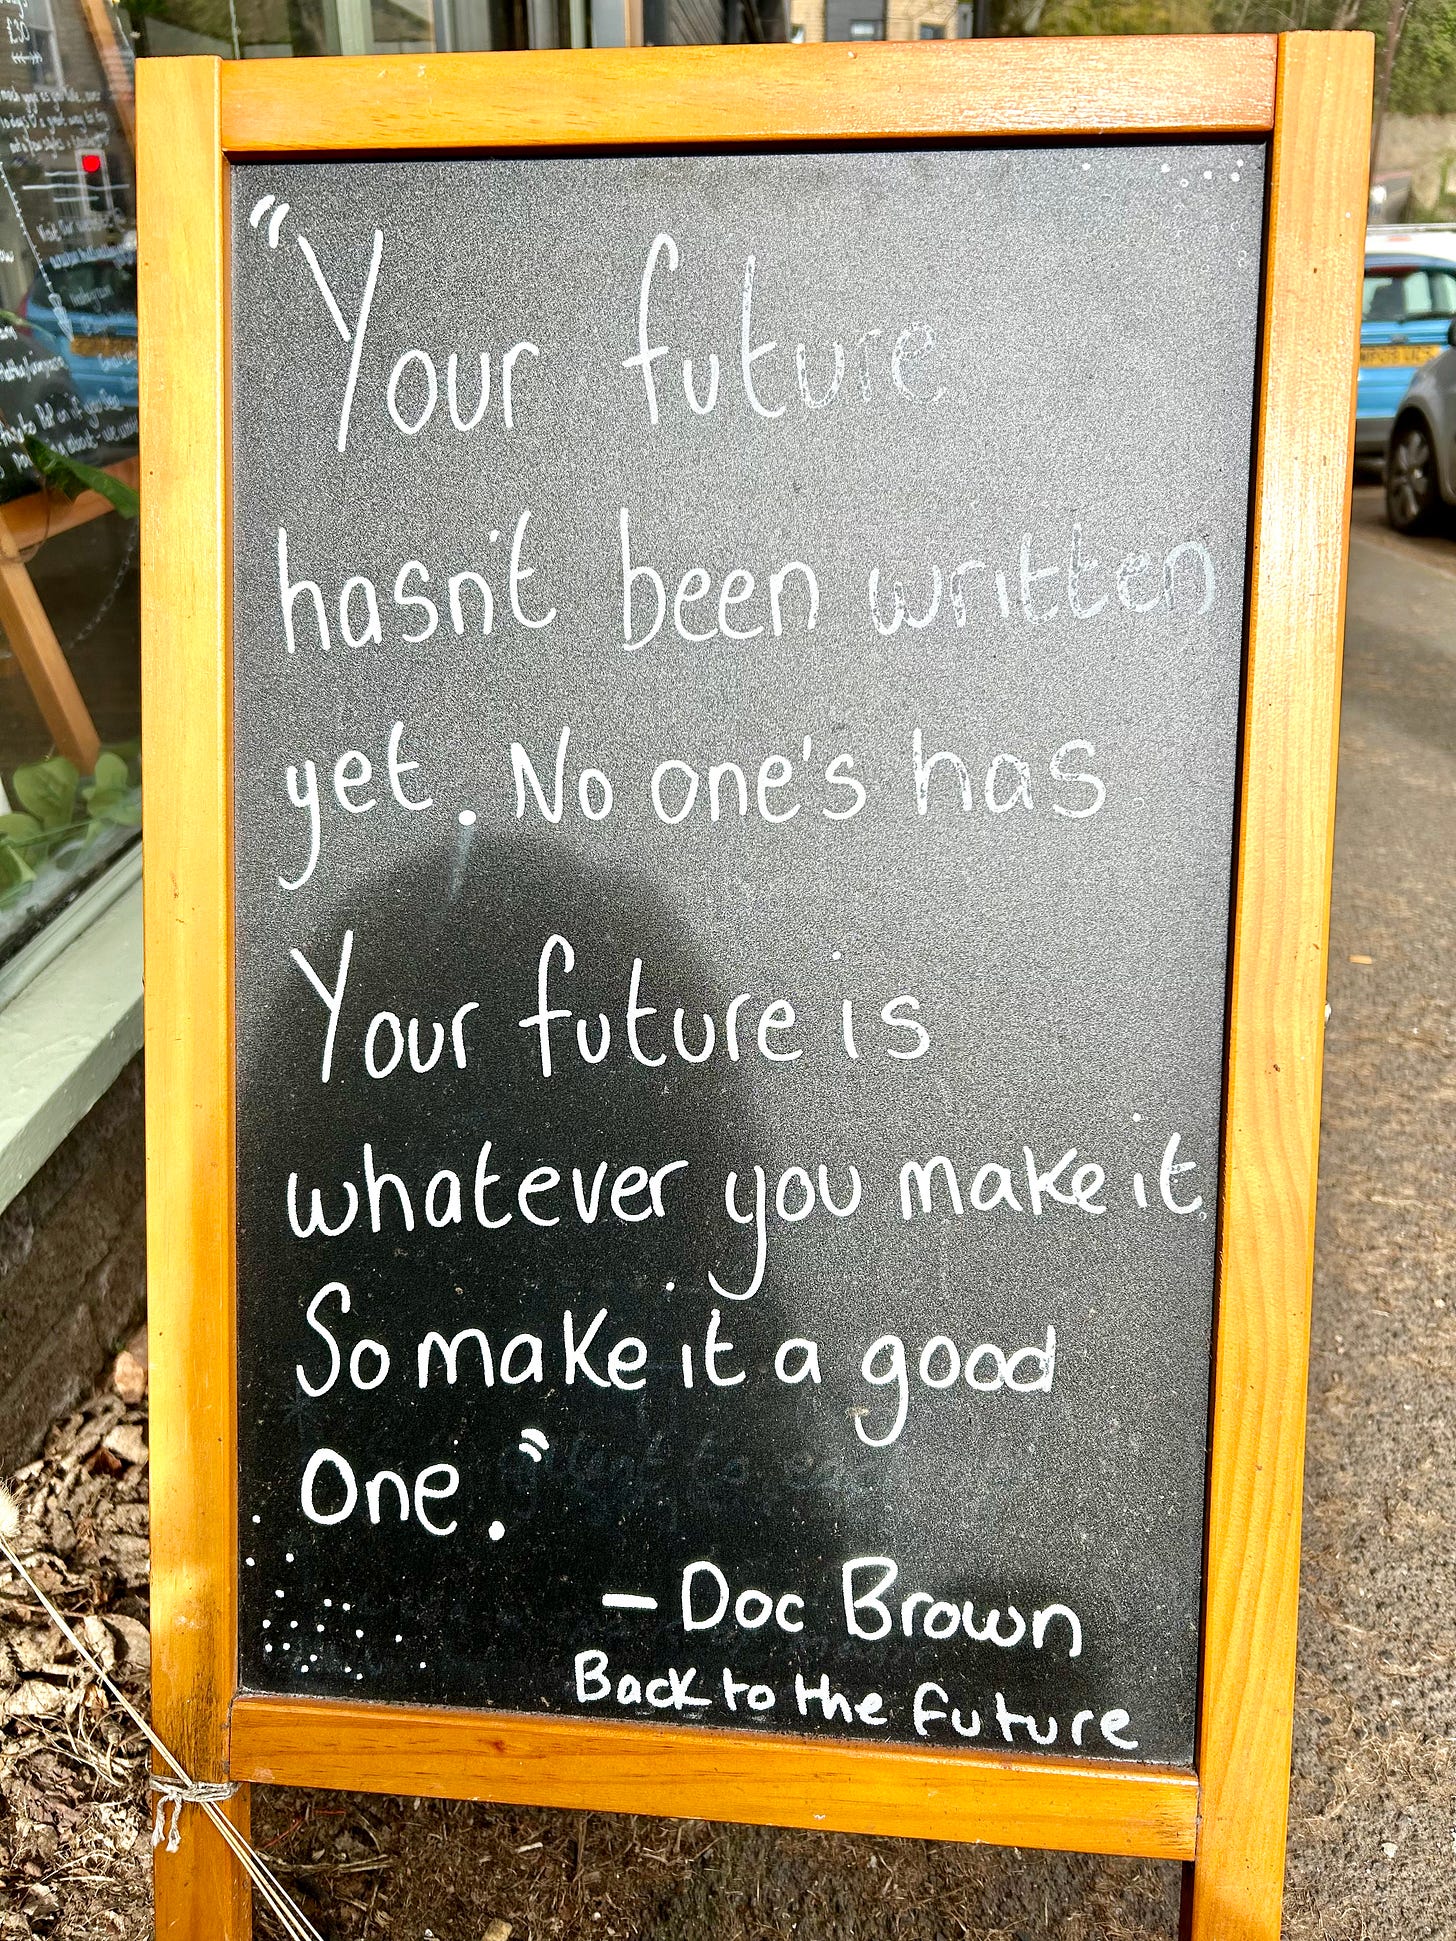 "Your future
hasn't been written
yet. No one's has
Your future is
whatever you make it.
So make it a good
one."
- Doc Brown
Back to the future